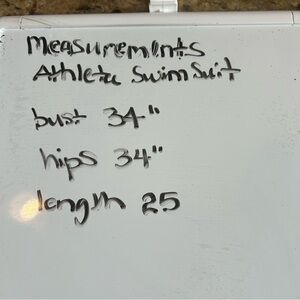 Measurements
Athleta Swim Suit
bust 34"
hips 34"
length 25